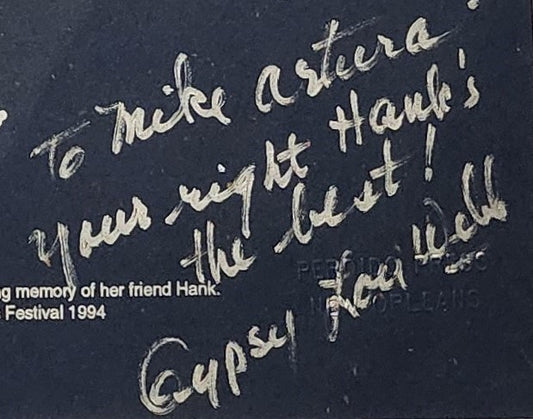 To Mike Artura
your right Hank's
the best!
Gypsy Lou Webb
PERDIDO PRESS
NEW ORLEANS
g memory of her friend Hank.
s Festival 1994